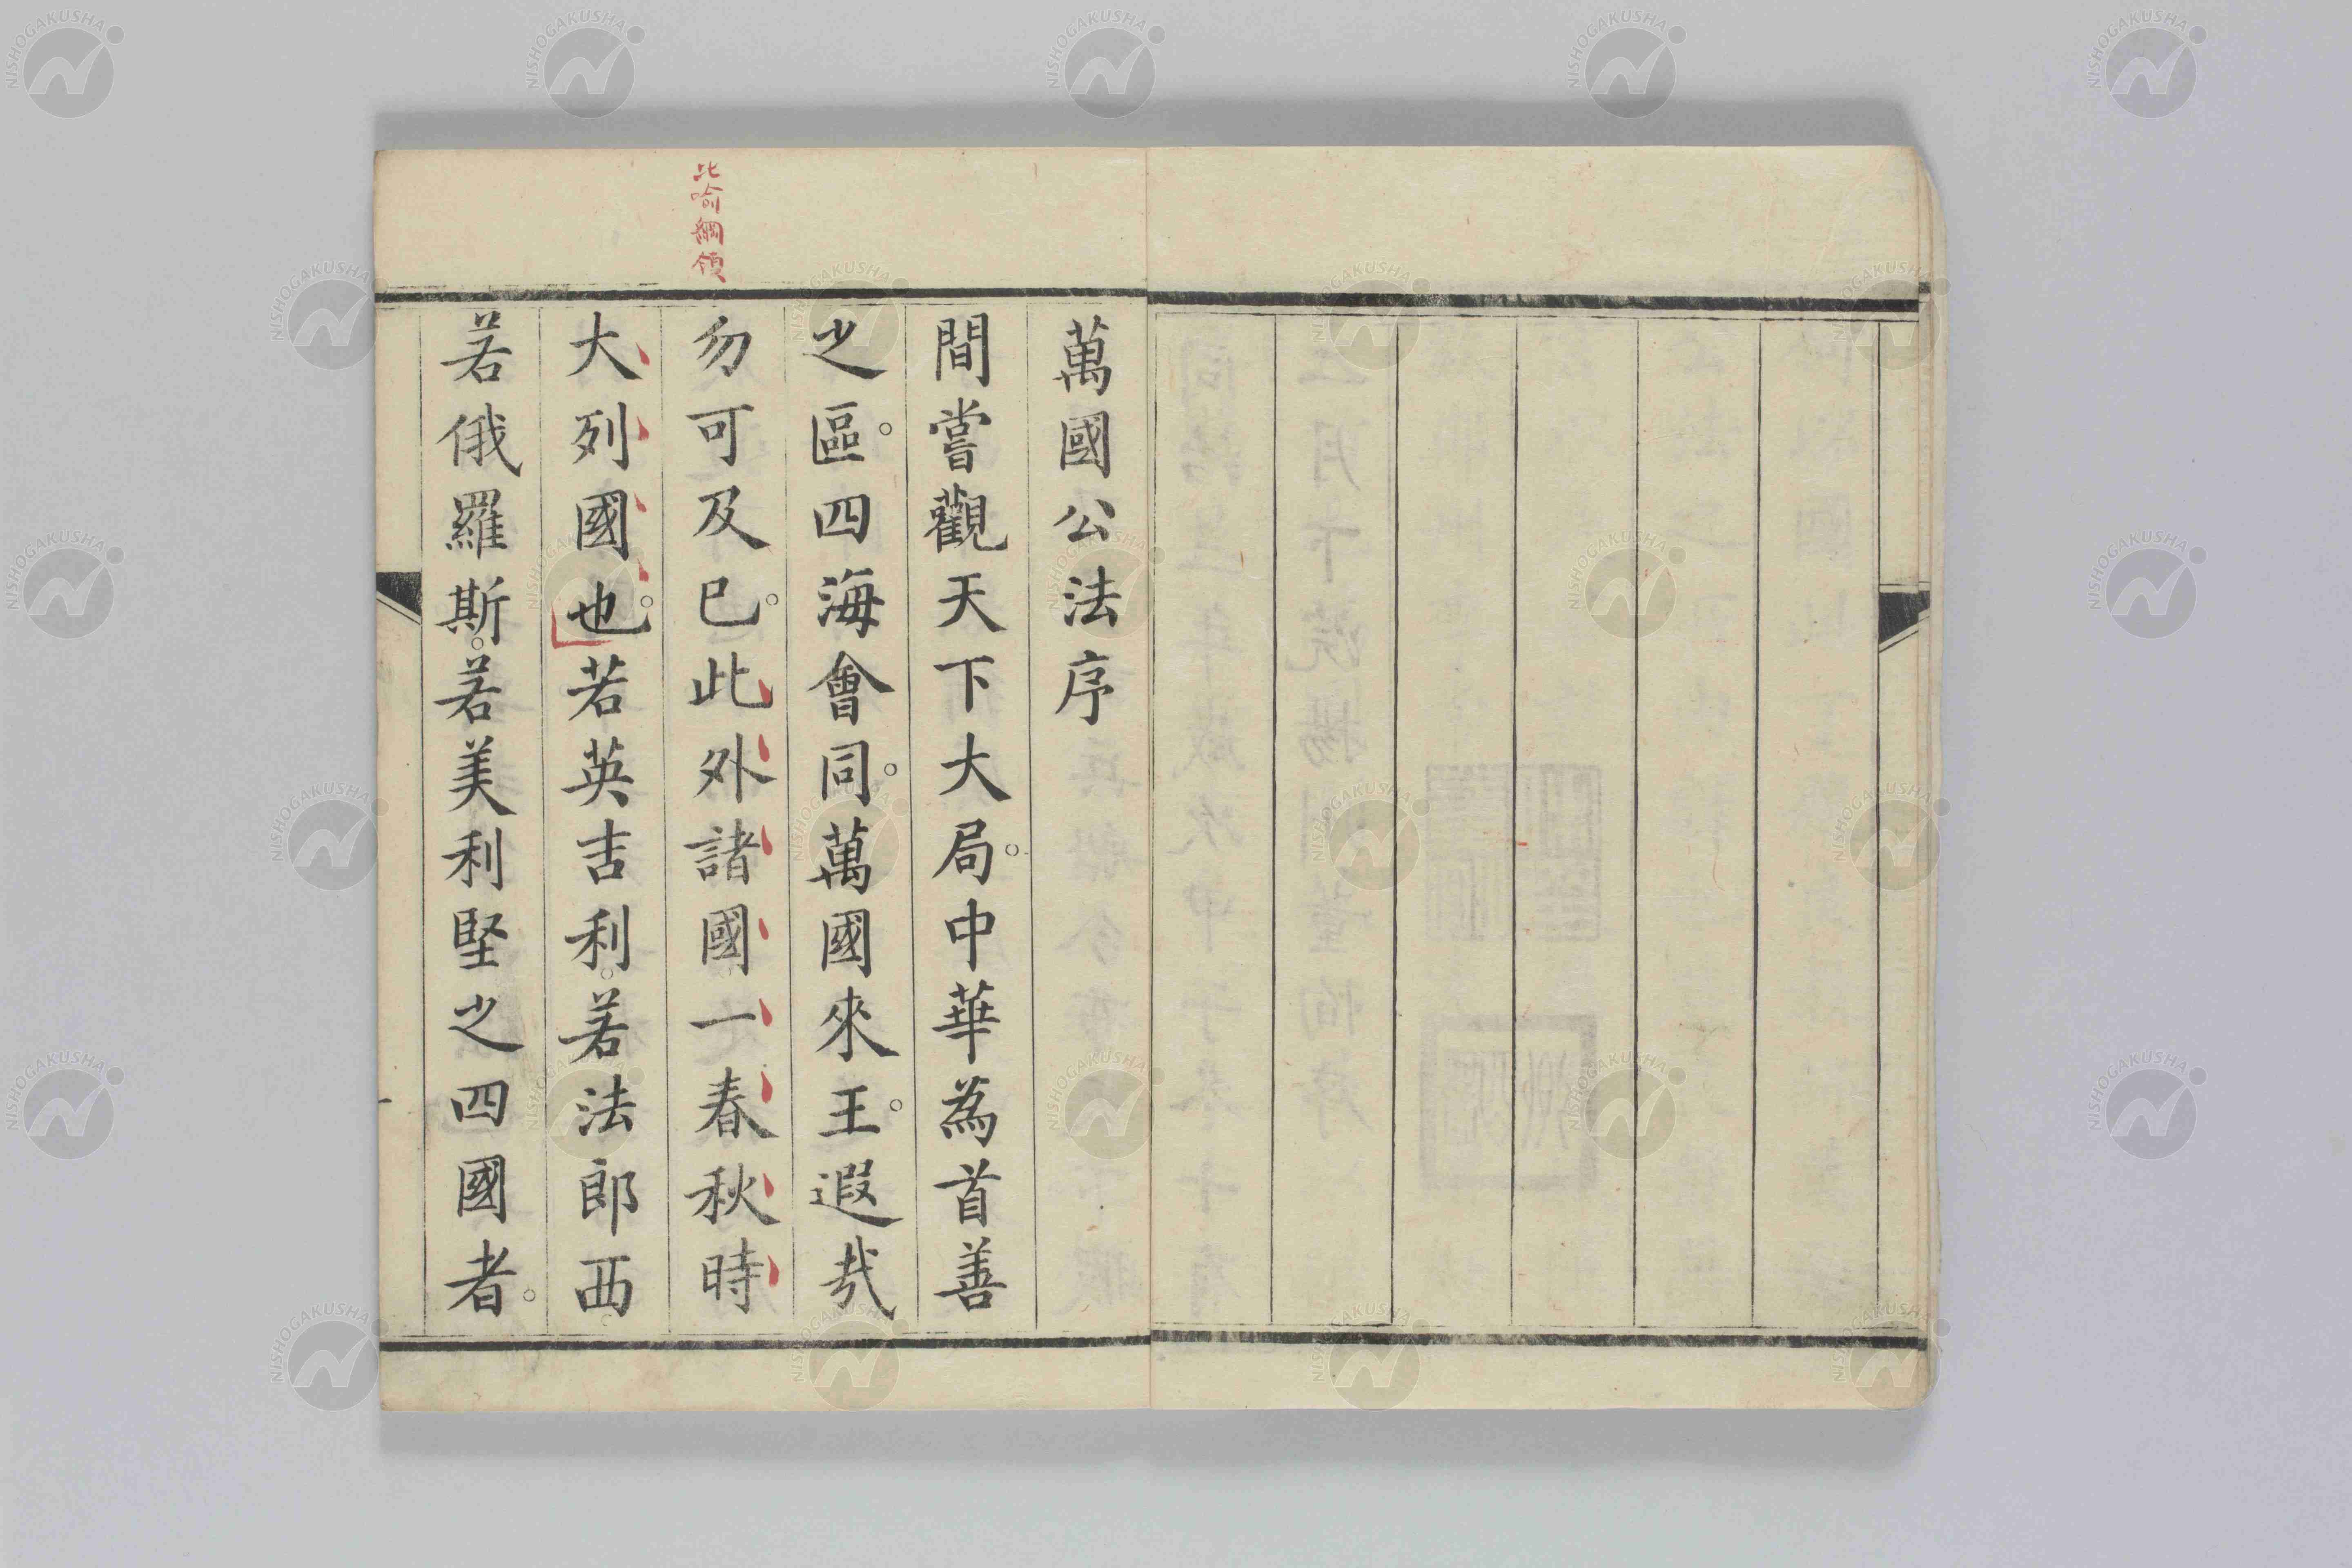 萬國公法序
間嘗觀天下大局。中華為首善
之區。四海會同。萬國來王。遐哉
勿可及已。此外諸國一春秋時
大列國也。若英吉利。若法郎西
若俄羅斯。若美利堅之四國者。
比喻綱領
NISHOGAKUSHA